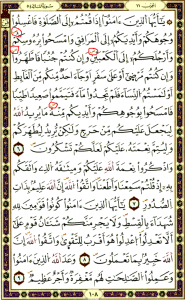 يَٰٓأَيُّهَا ٱلَّذِينَ ءَامَنُوٓاْ إِذَا قُمۡتُمۡ إِلَى ٱلصَّلَوٰةِ فَٱغۡسِلُواْ
وُجُوهَكُمۡ وَأَيۡدِيَكُمۡ إِلَى ٱلۡمَرَافِقِ وَٱمۡسَحُواْ بِرُءُوسِكُمۡ
وَأَرۡجُلَكُمۡ إِلَى ٱلۡكَعۡبَيۡنِۚ وَإِن كُنتُمۡ جُنُبٗا فَٱطَّهَّرُواْۚ
وَإِن كُنتُم مَّرۡضَىٰٓ أَوۡ عَلَىٰ سَفَرٍ أَوۡ جَآءَ أَحَدٞ مِّنكُم مِّنَ ٱلۡغَآئِطِ
أَوۡ لَٰمَسۡتُمُ ٱلنِّسَآءَ فَلَمۡ تَجِدُواْ مَآءٗ فَتَيَمَّمُواْ صَعِيدٗا طَيِّبٗا
فَٱمۡسَحُواْ بِوُجُوهِكُمۡ وَأَيۡدِيكُم مِّنۡهُۚ مَا يُرِيدُ ٱللَّهُ
لِيَجۡعَلَ عَلَيۡكُم مِّنۡ حَرَجٖ وَلَٰكِن يُرِيدُ لِيُطَهِّرَكُمۡ
وَلِيُتِمَّ نِعۡمَتَهُۥ عَلَيۡكُمۡ لَعَلَّكُمۡ تَشۡكُرُونَ ٦
وَٱذۡكُرُواْ نِعۡمَةَ ٱللَّهِ عَلَيۡكُمۡ وَمِيثَٰقَهُ ٱلَّذِي وَاثَقَكُم
بِهِۦٓ إِذۡ قُلۡتُمۡ سَمِعۡنَا وَأَطَعۡنَاۖ وَٱتَّقُواْ ٱللَّهَۚ إِنَّ ٱللَّهَ عَلِيمُۢ بِذَاتِ
ٱلصُّدُورِ ٧ يَٰٓأَيُّهَا ٱلَّذِينَ ءَامَنُواْ كُونُواْ قَوَّٰمِينَ لِلَّهِ
شُهَدَآءَ بِٱلۡقِسۡطِۖ وَلَا يَجۡرِمَنَّكُمۡ شَنَـَٔانُ قَوۡمٍ عَلَىٰٓ
أَلَّا تَعۡدِلُواْۚ ٱعۡدِلُواْ هُوَ أَقۡرَبُ لِلتَّقۡوَىٰۖ وَٱتَّقُواْ ٱللَّهَۚ إِنَّ ٱللَّهَ
خَبِيرُۢ بِمَا تَعۡمَلُونَ ٨ وَعَدَ ٱللَّهُ ٱلَّذِينَ ءَامَنُواْ
وَعَمِلُواْ ٱلصَّٰلِحَٰتِ لَهُم مَّغۡفِرَةٞ وَأَجۡرٌ عَظِيمٞ ٩
١٠٨